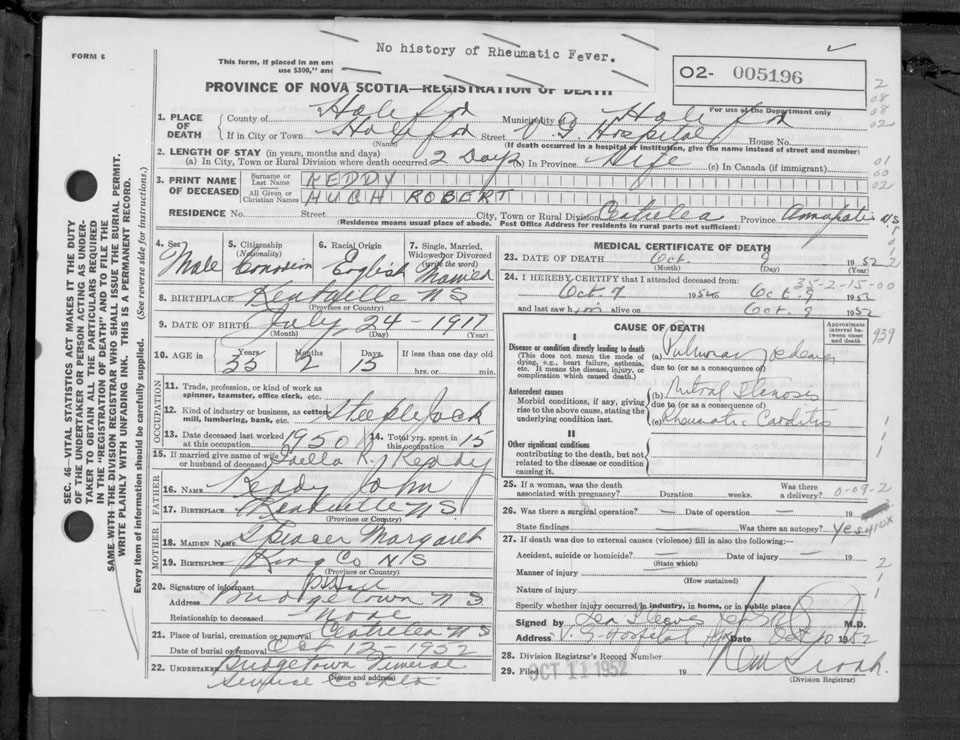 No history of Rheumatic Fever.
FORM 6
This form, if placed in an env
use $300," and
O2- 005196
PROVINCE OF NOVA SCOTIA—REGISTRATION OF DEATH
For use of the Department only
1. PLACE OF DEATH
County of Halifax Municipality of Halifax
If in City or Town Halifax Street V.G. Hospital House No.
(Name) (If death occurred in a hospital or institution, give the name instead of street and number)
2. LENGTH OF STAY (in years, months and days)
(a) In City, Town or Rural Division where death occurred 2 Days (b) In Province Life (c) In Canada (if immigrant)
3. PRINT NAME OF DECEASED
Surname or Last Name KEDDY
All Given or Christian Names HUGH ROBERT
RESIDENCE No. Street City, Town or Rural Division Centrelea Province Annapolis NS
(Residence means usual place of abode. Post Office Address for residents in rural parts not sufficient)
4. Sex Male
5. Citizenship (Nationality) Canadian
6. Racial Origin English
7. Single, Married, Widowed or Divorced (write the word) Married
8. BIRTHPLACE Kentville NS
(Province or Country)
9. DATE OF BIRTH July 24 - 1917
(Month) (Day) (Year)
10. AGE in Years Months Days If less than one day old
35 2 15 hrs. or min.
OCCUPATION
11. Trade, profession, or kind of work as spinner, teamster, office clerk, etc.
12. Kind of industry or business, as cotton mill, lumbering, bank, etc. Steeple Jack
13. Date deceased last worked at this occupation 1950
14. Total yrs. spent in this occupation 15
15. If married give name of wife or husband of deceased R. Keddy
FATHER
16. NAME Keddy John
17. BIRTHPLACE Kentville N.S.
(Province or Country)
MOTHER
18. MAIDEN NAME Spencer Margaret
19. BIRTHPLACE King Co N/S
(Province or Country)
20. Signature of informant
Address Bridgetown N S
Relationship to deceased None
21. Place of burial, cremation or removal Centrelea NS
Date of burial or removal Oct 12 - 1952
22. UNDERTAKER Bridgetown Funeral
Service
(Name and address)
MEDICAL CERTIFICATE OF DEATH
23. DATE OF DEATH Oct. 9 1952
(Month) (Day) (Year)
24. I HEREBY CERTIFY that I attended deceased from: 35-2-15-00
Oct. 7 1952 to Oct. 9 1952
and last saw him alive on Oct. 9 1952
CAUSE OF DEATH
Approximate interval between onset and death
939
I
Disease or condition directly leading to death
(This does not mean the mode of dying, e.g., heart failure, asthenia, etc. It means the disease, injury, or complication which caused death.)
(a) Pulmonary oedema
due to (or as a consequence of)
Antecedent causes
Morbid conditions, if any, giving rise to the above cause, stating the underlying condition last.
(b) Mitral Stenosis
due to (or as a consequence of)
(c) Rheumatic Carditis
II
Other significant conditions
contributing to the death, but not related to the disease or condition causing it.
25. If a woman, was the death associated with pregnancy? Duration weeks. Was there a delivery? 0-09-2
26. Was there a surgical operation? — Date of operation — 19
State findings Was there an autopsy? Yes 410X
27. If death was due to external causes (violence) fill in also the following:—
Accident, suicide or homicide? — Date of injury — 19
(State which)
Manner of injury
(How sustained)
Nature of injury
Specify whether injury occurred in industry, in home, or in public place
Signed by M.D.
Address V.G. Hospital Date Oct 10 1952
28. Division Registrar's Record Number
29. Filed OCT 11 1952 19
(Division Registrar)
SEC. 46—VITAL STATISTICS ACT MAKES IT THE DUTY
OF THE UNDERTAKER OR PERSON ACTING AS UNDER-
TAKER TO OBTAIN ALL THE PARTICULARS REQUIRED
IN THE "REGISTRATION OF DEATH" AND TO FILE THE
SAME WITH THE DIVISION REGISTRAR WHO SHALL ISSUE THE BURIAL PERMIT.
WRITE PLAINLY WITH UNFADING INK. THIS IS A PERMANENT RECORD.
Every item of information should be carefully supplied. (See reverse side for instructions.)